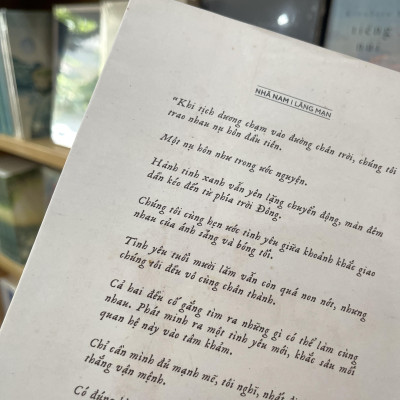 NHÃ NAM | LÃNG MẠN
"Khi tịch dương chạm vào đường chân trời, chúng tôi
trao nhau nụ hôn đầu tiên.
Một nụ hôn như trong ước nguyện.
Hành tinh xanh vẫn yên lặng chuyển động, màn đêm
dần kéo đến từ phía trời Đông.
Chúng tôi cùng hẹn ước tình yêu giữa khoảnh khắc giao
nhau của ánh sáng và bóng tối.
Tình yêu tuổi mười lăm vẫn còn quá non nớt, nhưng
chúng tôi đều vô cùng chân thành.
Cả hai đều cố gắng tìm ra những gì có thể làm cùng
nhau. Phát minh ra một tình yêu mới, khắc sâu mối
quan hệ này vào tâm khảm.
Chỉ cần mình đủ mạnh mẽ, tôi nghĩ, nhất
thắng vận mệnh.
Có đúng